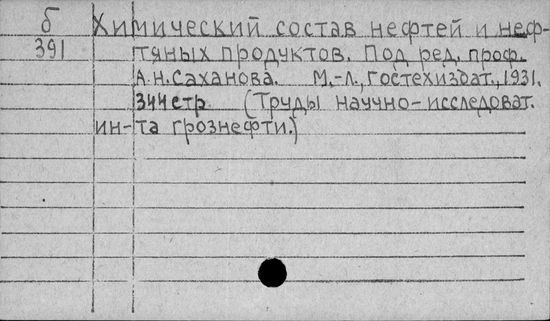 б Химический состав нефтей и неф-
391 тяных продуктов. Под ред. проф.
А.Н.Саханова. М.-Л., Гостехиздат., 1931.
344 стр (Труды научно-исследоват.
ин-та грознефти.)